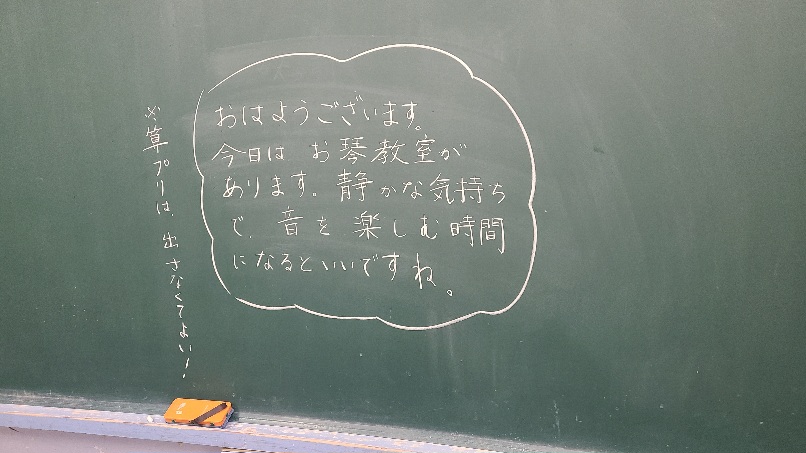 おはようございます。
今日は お琴教室が
あります。静かな気持ち
で、音を楽しむ時間
になるといいですね。
※算プリは、出さなくてよい!